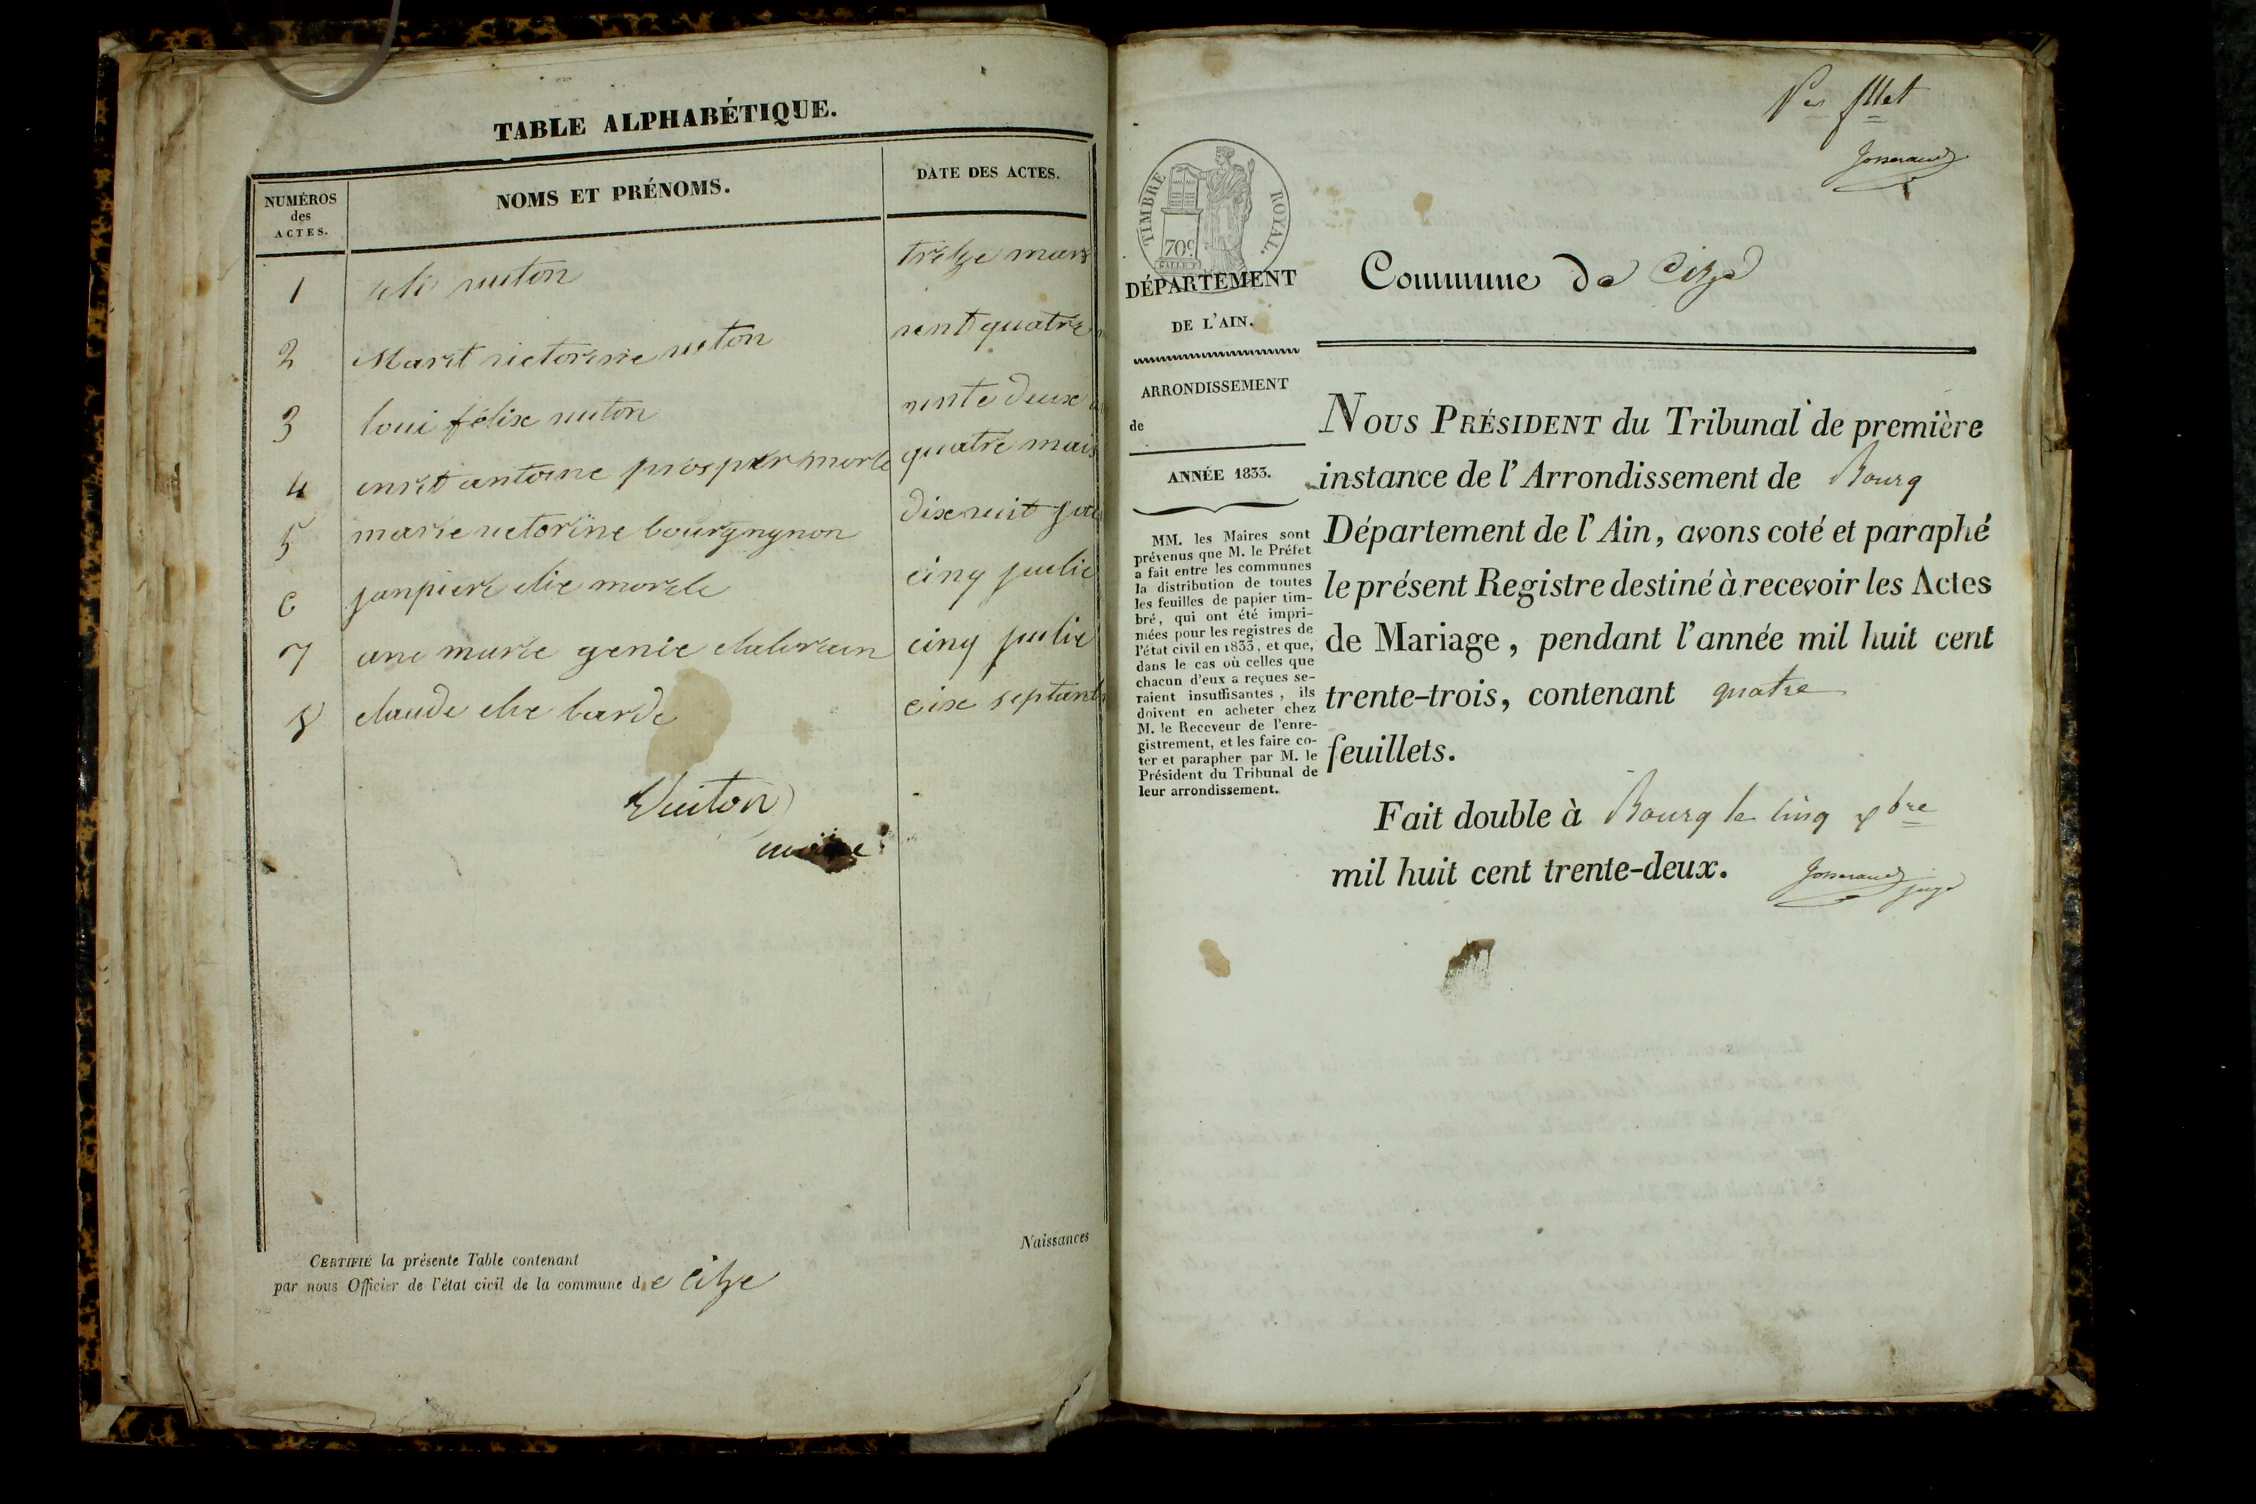 TABLE ALPHABÉTIQUE.
NUMÉROS
des
ACTES.
NOMS ET PRÉNOMS.
DATE DES ACTES.
1 vuiton treze mars
2 Marit victorine vuiton quatre
3 loui félix vuiton vinte deux
4 antoine prosper morel quatre mais
5 marie victorine bourgnynon dix
6 janpiere elie morele cinq julie
7 ane marie genie cinq julie
8 claude elie barde cix septan
Vuiton
maire
Naissances
CERTIFIÉ la présente Table contenant
par nous Officier de l'état civil de la commune de Cize
Per fllet
Josserand
TIMBRE ROYAL.
70c
DÉPARTEMENT
DE L'AIN.
ARRONDISSEMENT
de
ANNÉE 1833.
MM. les Maires sont
prévenus que M. le Préfet
a fait entre les communes
la distribution de toutes
les feuilles de papier tim-
bré, qui ont été impri-
mées pour les registres de
l'état civil en 1833, et que,
dans le cas où celles que
chacun d'eux a reçues se-
raient insuffisantes, ils
doivent en acheter chez
M. le Receveur de l'enre-
gistrement, et les faire co-
ter et parapher par M. le
Président du Tribunal de
leur arrondissement.
Commune de Cize
NOUS PRÉSIDENT du Tribunal de première
instance de l'Arrondissement de Bourg
Département de l'Ain, avons coté et paraphé
le présent Registre destiné à recevoir les Actes
de Mariage, pendant l'année mil huit cent
trente-trois, contenant quatre
feuillets.
Fait double à Bourg le cinq xbre
mil huit cent trente-deux.
Josserand
juge